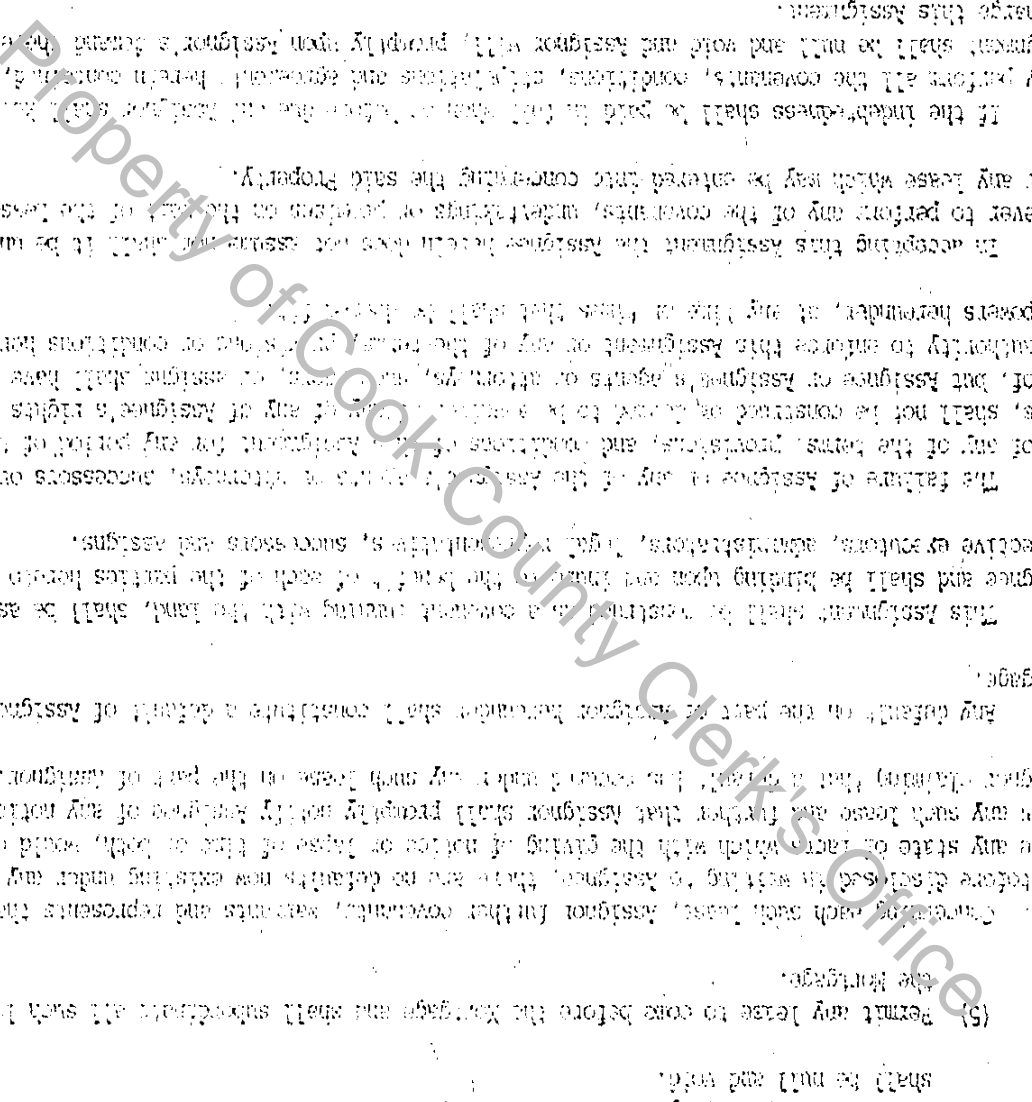 shall be null and void.
(5) Permit any lease to come before the Mortgage and shall subordinate all such l
the Mortgage.
Concerning each such lease, Assignor further covenants, warrants and represents the
tofore disclosed in writing to Assignee, there are no defaults now existing under any
e any state of facts which with the giving of notice or lapse of time or both, would c
any such lease and further that Assignor shall promptly notify Assignee of any notic
claiming that a default has occurred under any such lease on the part of Assignor.
Any default on the part of Assignor hereunder shall constitute a default of Assigno
gage.
This Assignment shall be construed as a covenant running with the land, shall be as
gnee and shall be binding upon and inure to the benefit of each of the parties hereto
ective executors, administrators, legal representatives, successors and assigns.
The failure of Assignee or any of the Assignee's agents or attorneys, successors or
of any of the terms, provisions, and conditions of this Assignment for any period of
s, shall not be construed or deemed to be a waiver of any of Assignee's rights
of, but Assignee or Assignee's agents or attorneys, successors, or assigns shall have
uthority to enforce this Assignment or any of the terms, provisions or conditions her
powers hereunder, at any time or times that shall be deemed fit.
In accepting this Assignment the Assignee herein does not assume nor shall it be un
ever to perform any of the covenants, undertakings or promises on the part of the Less
any lease which may be entered into concerning the said Property.
If the indebtedness shall be paid in full when or before due and Assignor shall
perform all the covenants, conditions, stipulations and agreements herein contained,
gnment shall be null and void and Assignor will, promptly upon Assignor's demand there
harge this Assignment.
Property of Cook County Clerk's Office